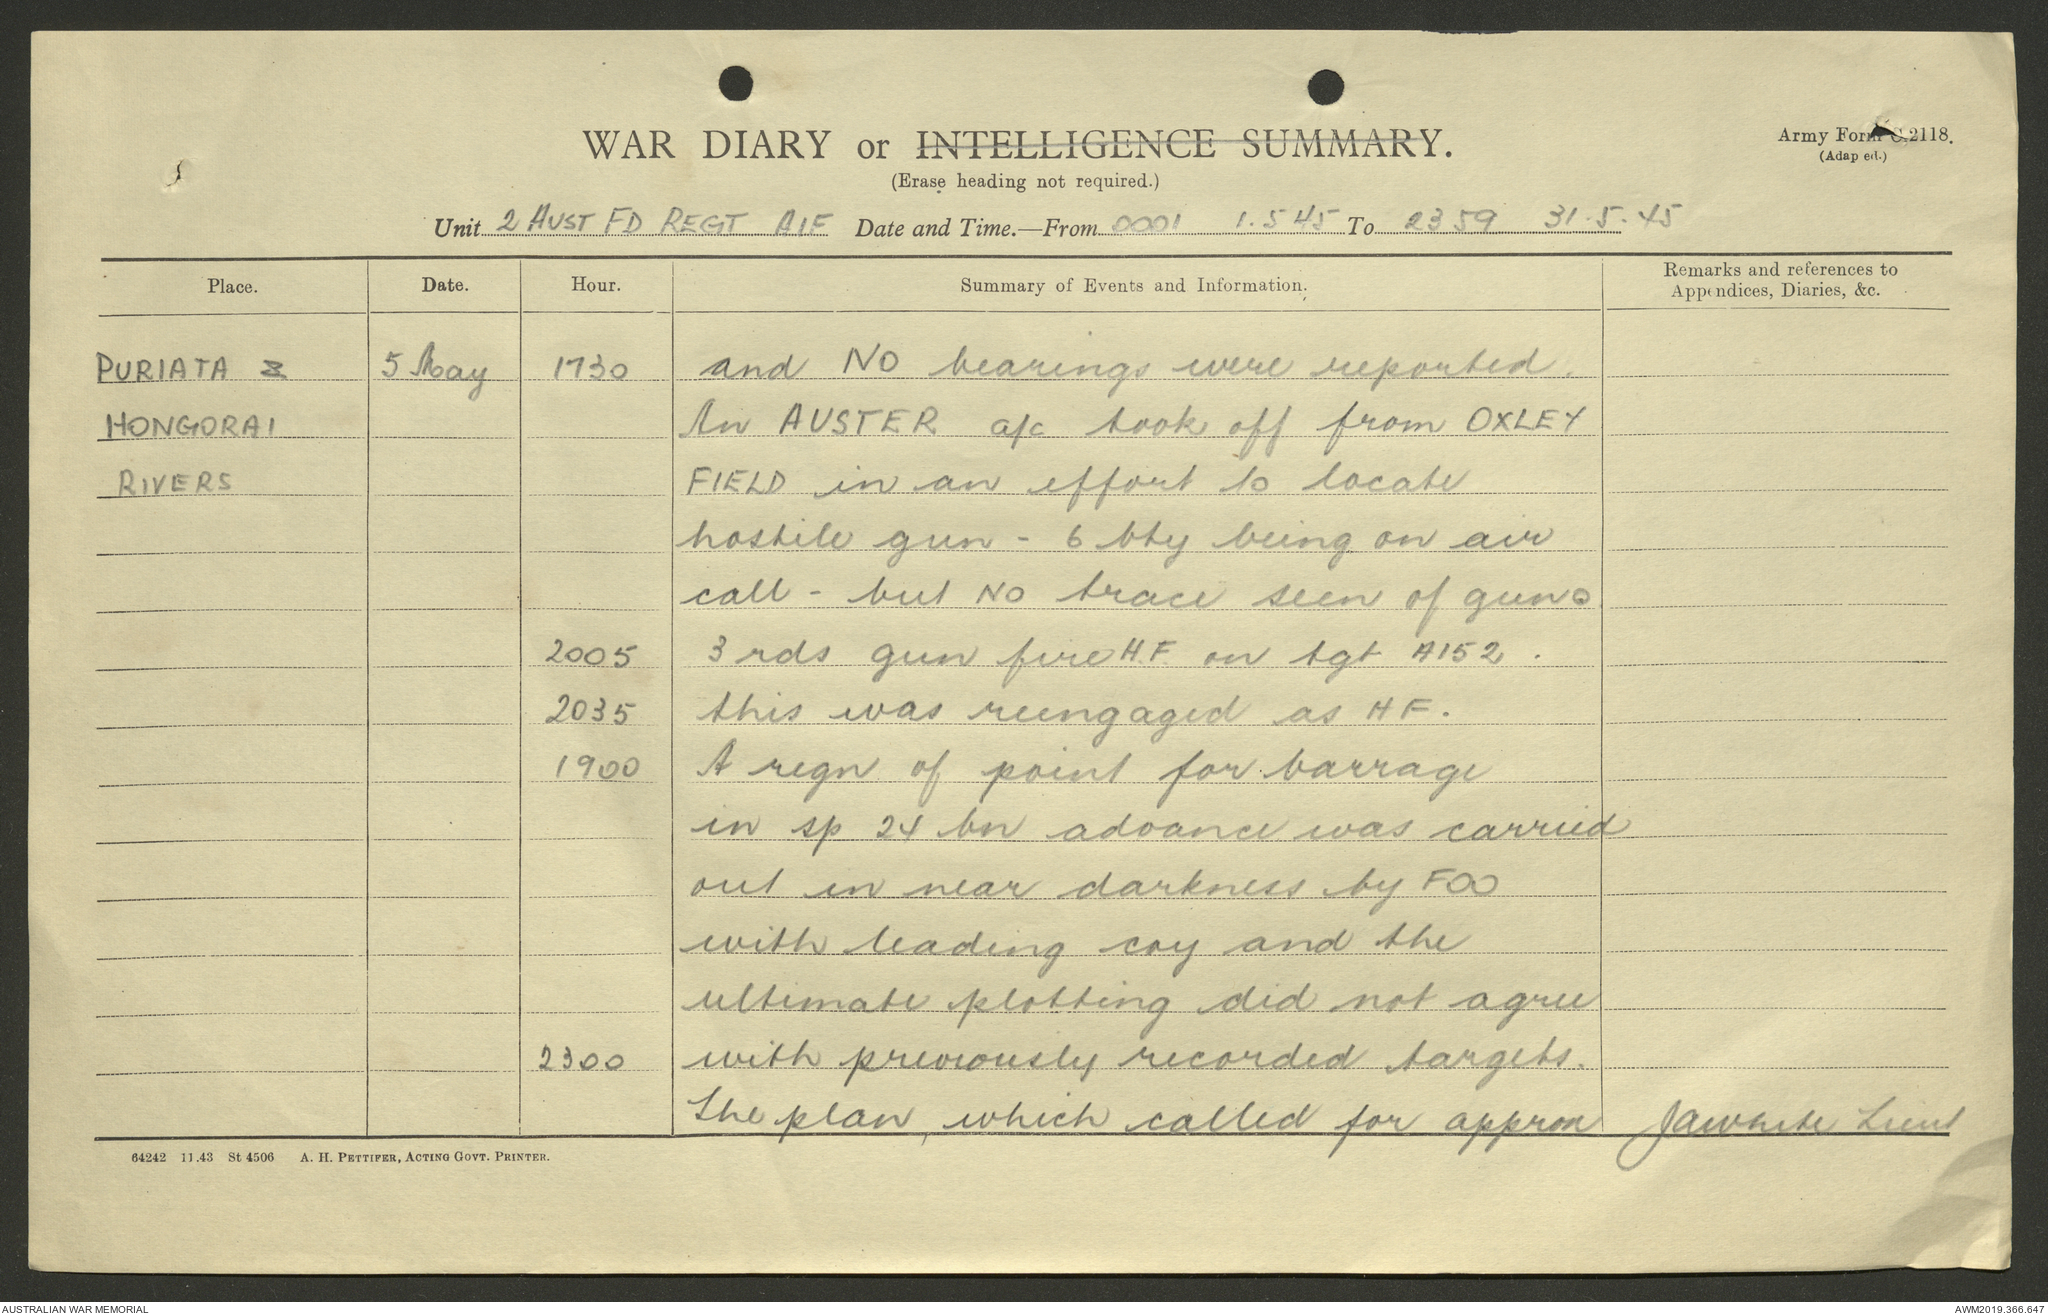 WAR DIARY or INTELLIGENCE SUMMARY.
Army Form C.2118.
(Adap ed.)
(Erase heading not required.)
Unit 2 AUST FD REGT AIF Date and Time.—From 0001 1.5 45 To 2359 31.5.45
Place. Date. Hour. Summary of Events and Information. Remarks and references to Appendices, Diaries, &c.
PURIATA & 5 May 1730 and NO bearings were reported.
HONGORAI An AUSTER a/c took off from OXLEY
RIVERS FIELD in an effort to locate
hostile gun - 6 bty being on air
call - but NO trace seen of gun.
2005 3 rds gun fire H.F. on tgt A152.
2035 this was reengaged as HF.
1900 A regn of point for barrage
in sp 24 bn advance was carried
out in near darkness by FOO
with leading coy and the
ultimate plotting did not agree
2300 with previously recorded targets.
The plan, which called for approx JAWhite Lieut
64242 11.43 St 4506 A. H. PETTIFER, ACTING GOVT. PRINTER.
AUSTRALIAN WAR MEMORIAL AWM2019.366.647